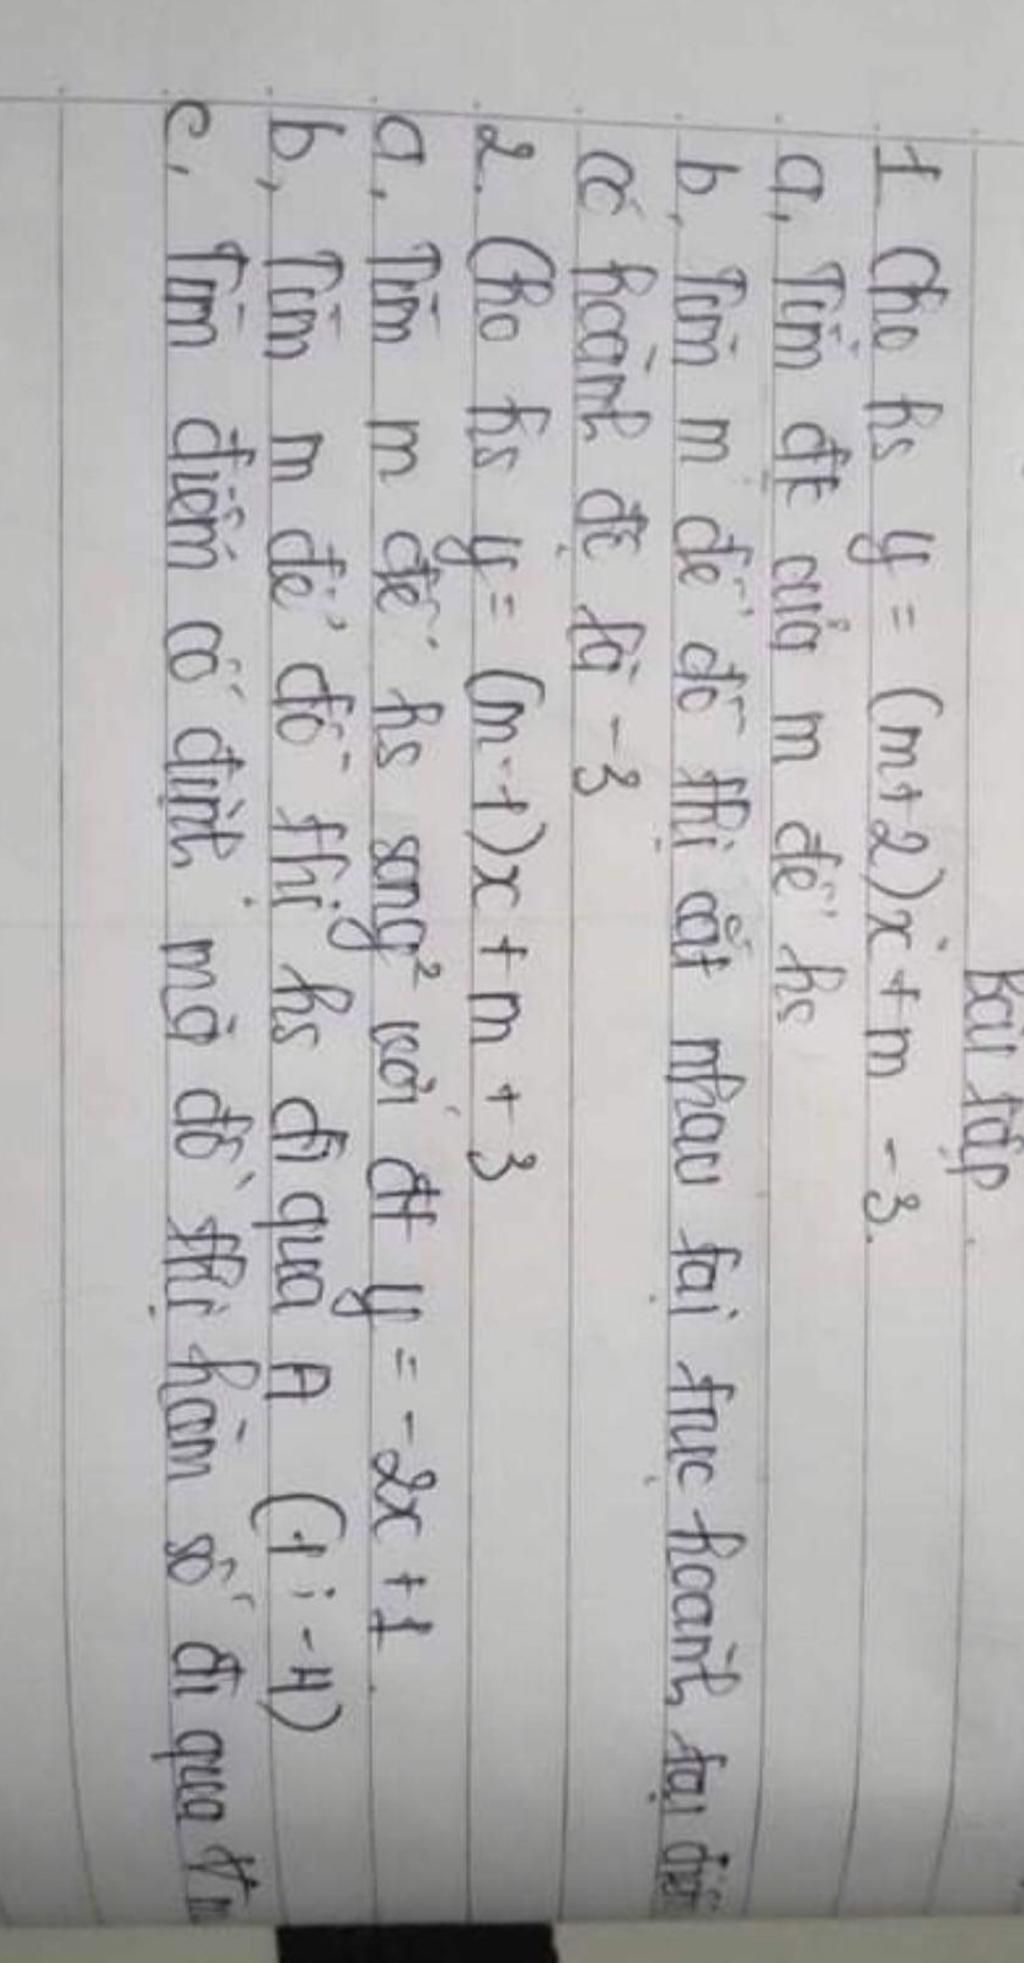 Bài tập.
1. Cho hs y = (m+2)x + m - 3.
a, Tìm đk của m để hs
b, Tìm m để đồ thị cắt nhau tại trục hoành tại điểm
có hoành độ là -3
2. Cho hs y = (m-1)x + m + 3
a, Tìm m để hs song² với đt y = -2x + 1.
b, Tìm m để đồ thị hs đi qua A (1; -4)
c, Tìm điểm cố định mà đồ thị hàm số đi qua ∀m